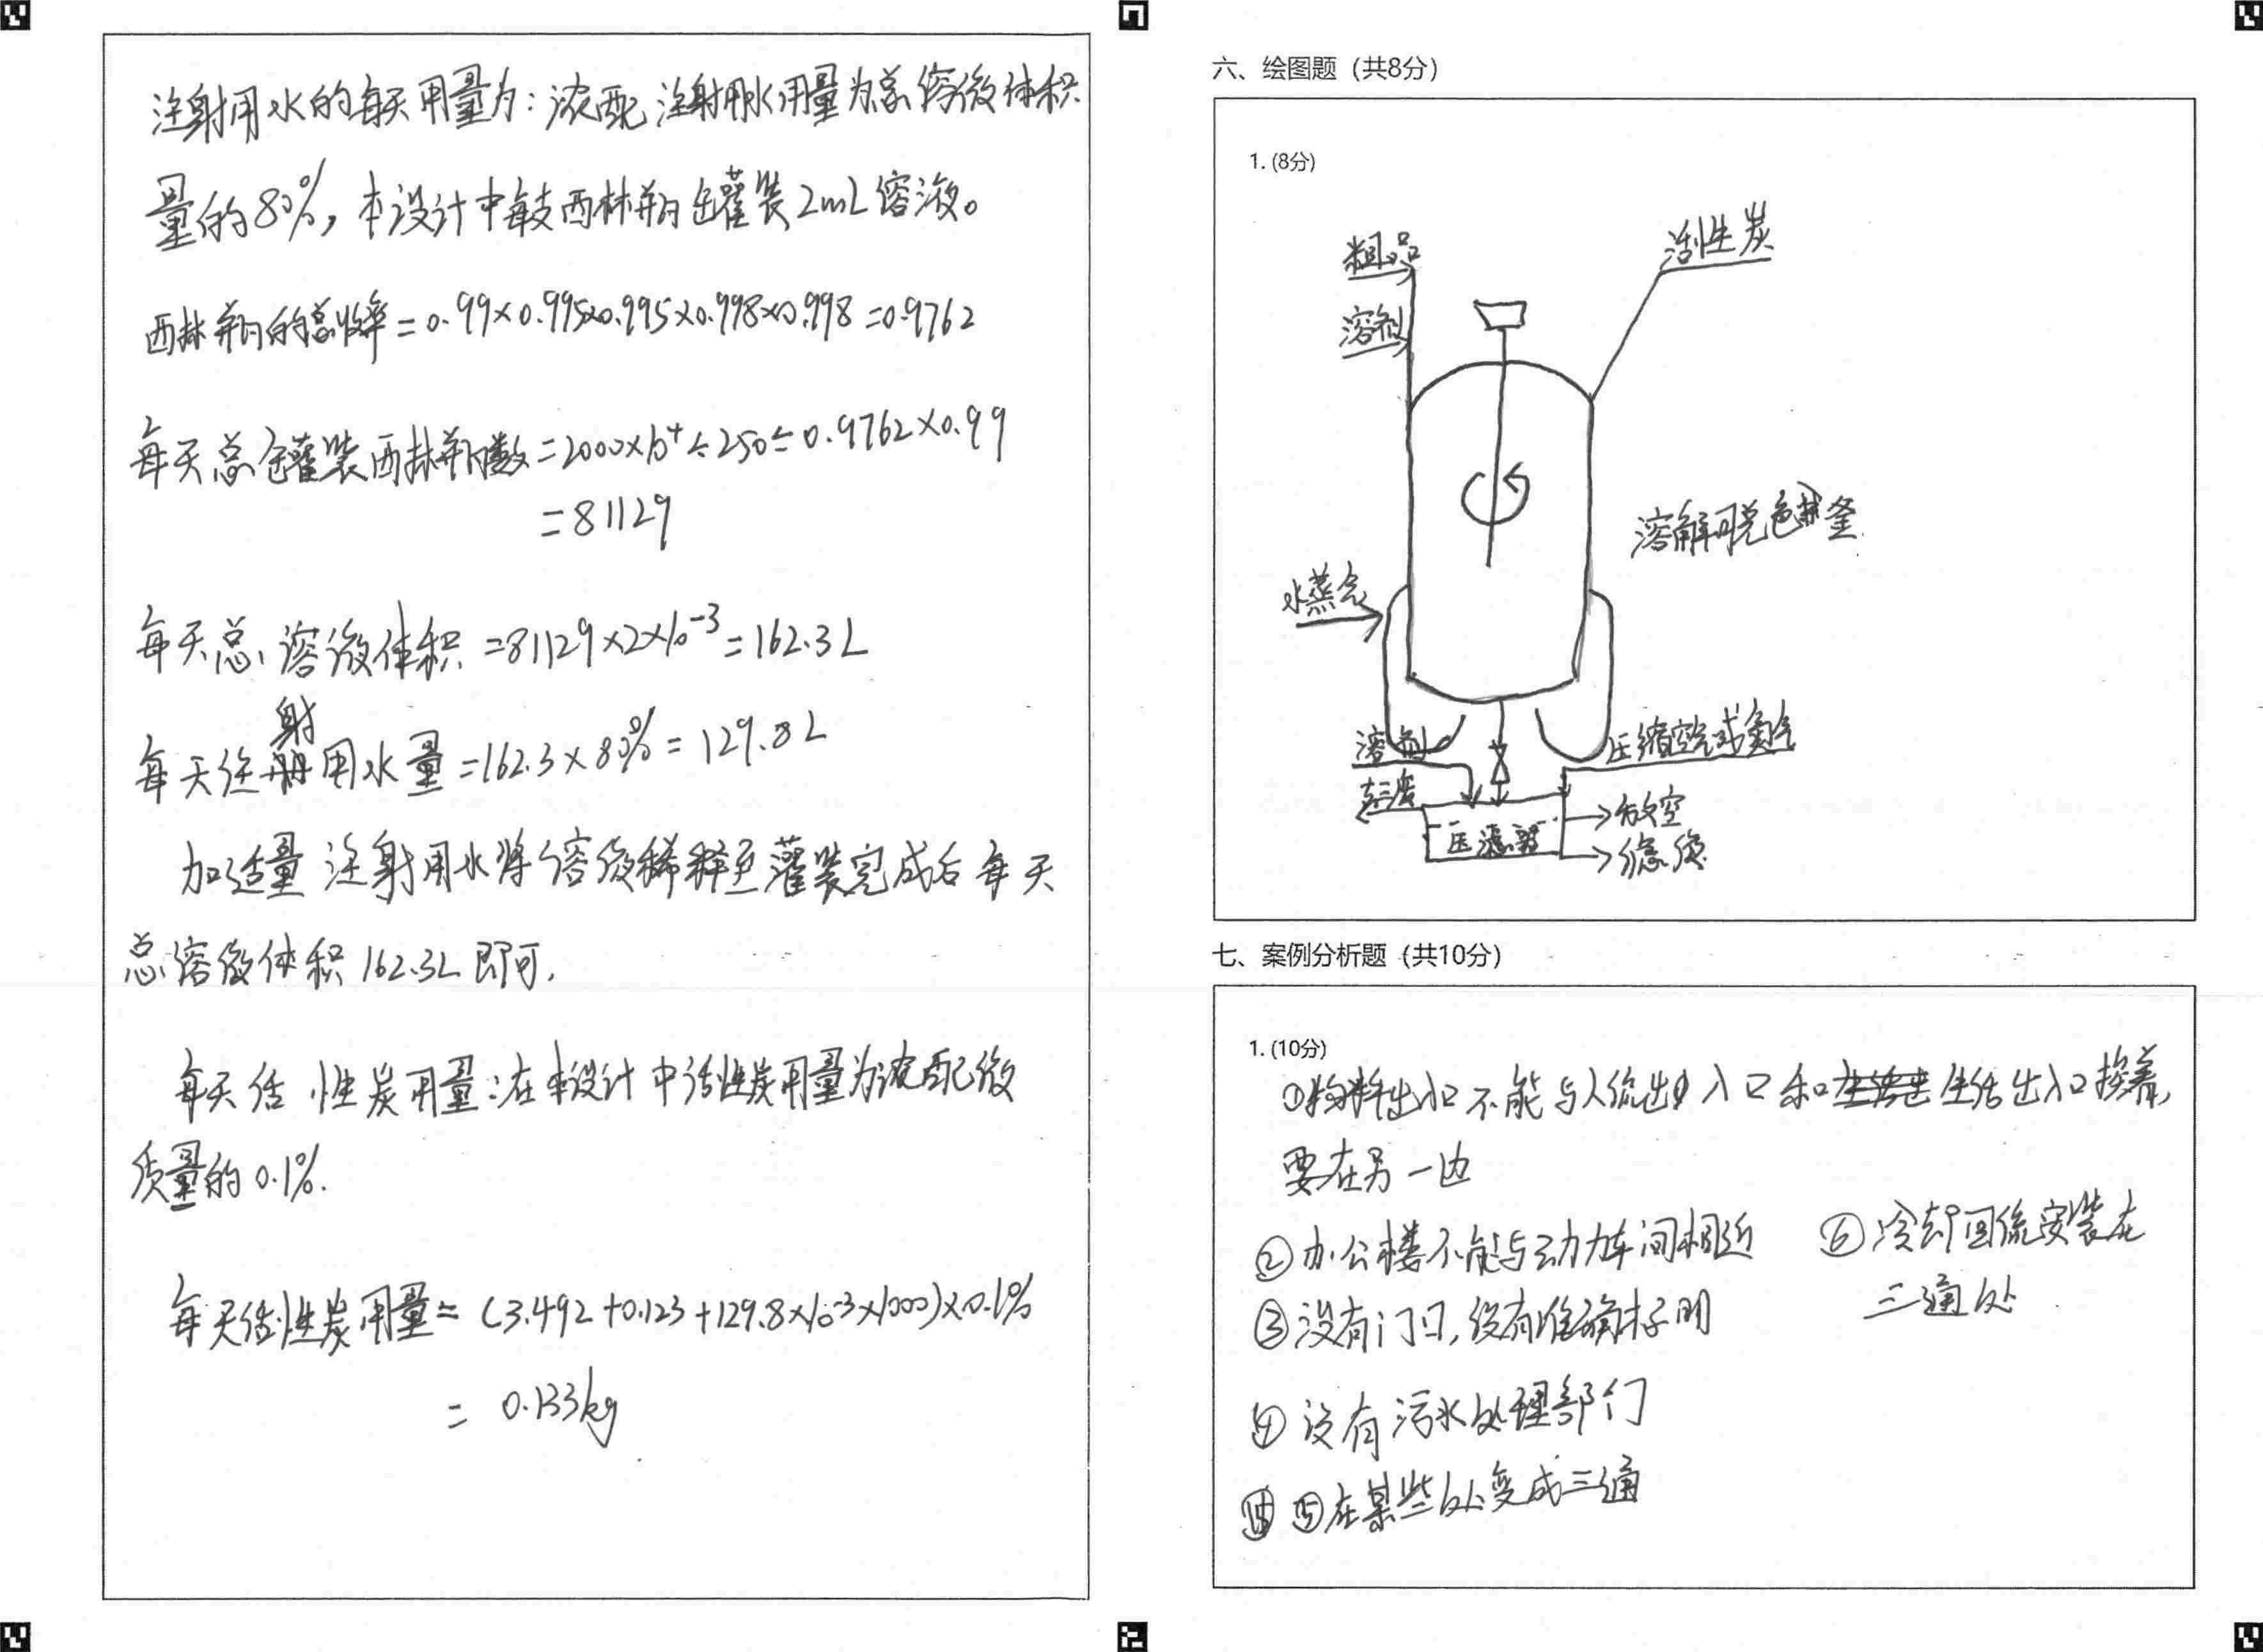 注射用水的每天用量为：浓配注射用水用量为总溶液体积
量的80%，本设计中每支西林瓶罐装2mL溶液。
西林瓶的总收率=0.99×0.995×0.995×0.998×0.998=0.9762
每天总罐装西林瓶数=2000×10⁴÷250÷0.9762×0.99
=81129
每天总溶液体积=81129×2×10⁻³=162.3L
每天注射用水量=162.3×80%=129.8L
加适量注射用水将溶液稀释至灌装完成后每天
总溶液体积162.3L即可.
每天活性炭用量：在本设计中活性炭用量为浓配液
质量的0.1%.
每天活性炭用量=(3.492+0.123+129.8×10⁻³×1000)×0.1%
= 0.133kg
六、绘图题（共8分）
1. (8分)
粗品
活性炭
溶剂
溶解脱色釜
水蒸气
溶剂
压缩空气或氮气
放空
压滤器
滤液
七、案例分析题（共10分）
1. (10分)
①物料出入口不能与人流出入口和生活出入口挨着，
要在另一边
②办公楼不能与动力车间相近
③没有门口，没有准确标明
④没有污水处理部门
⑤在某些处变成三通
⑥冷却回流安装在
三通处